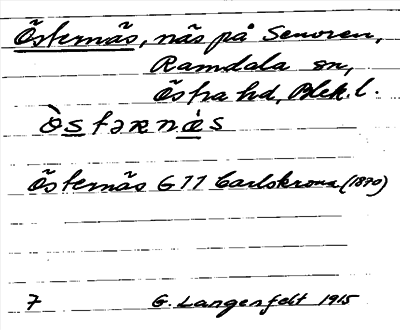 Östernäs, näs på Senoren,
Ramdala sn,
Östra hd, Blek. l.
ò̀stərnà̀s
Östernäs G 11 Carlskrona (1870)
7 G. Langenfelt 1915